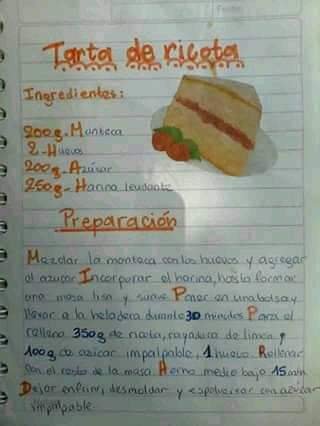 Tarta de ricota
Ingredientes:
200g-Manteca
2-Huevos
200g-Azúcar
250g-Harina leudante
Preparación
Mezclar la manteca con los huevos y agregar
el azucar Incorporar el harina, hasta formar
una masa lisa y suave Poner en una bolsa y
llevar a la heladera durante 30 minutos Para el
relleno 350g de ricota, rayadura de limon y
100g de azúcar impalpable, 1 huevo Rellenar
con el resto de la masa Horno medio bajo 15 min
Dejar enfriar, desmoldar y espolvorear con azúcar
impalpable